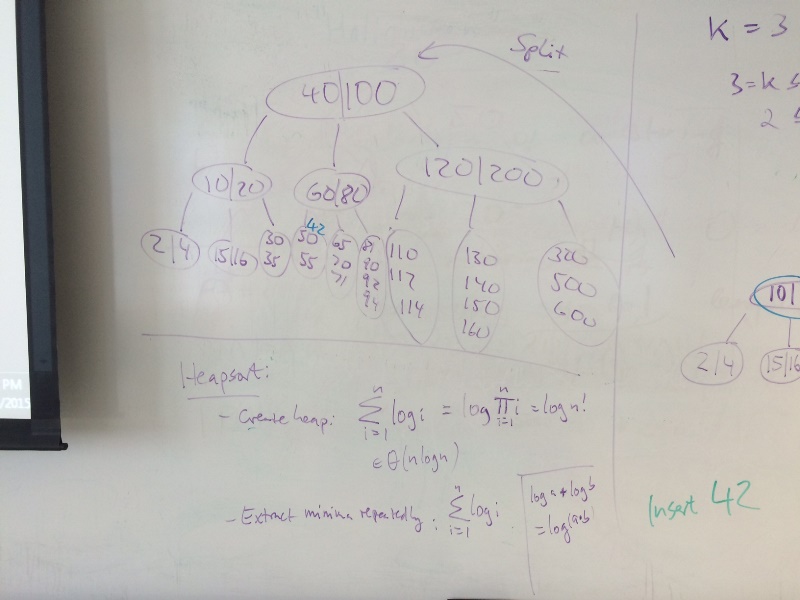 Split
K = 3
3=K ≤
2 ≤
40|100
10|20
60|80
120|200
2|4
15|16
30
35
42
50
55
65
70
71
81
90
92
94
110
112
114
130
140
150
160
500
600
101
2|4
15|16
PM
/2015
Heapsort:
- Create heap: n Σ i=1 log i = log n Π i=1 i = log n!
∈ θ(n log n)
- Extract minima repeatedly: n Σ i=1 log i
log a + log b
= log(a*b)
Insert 42